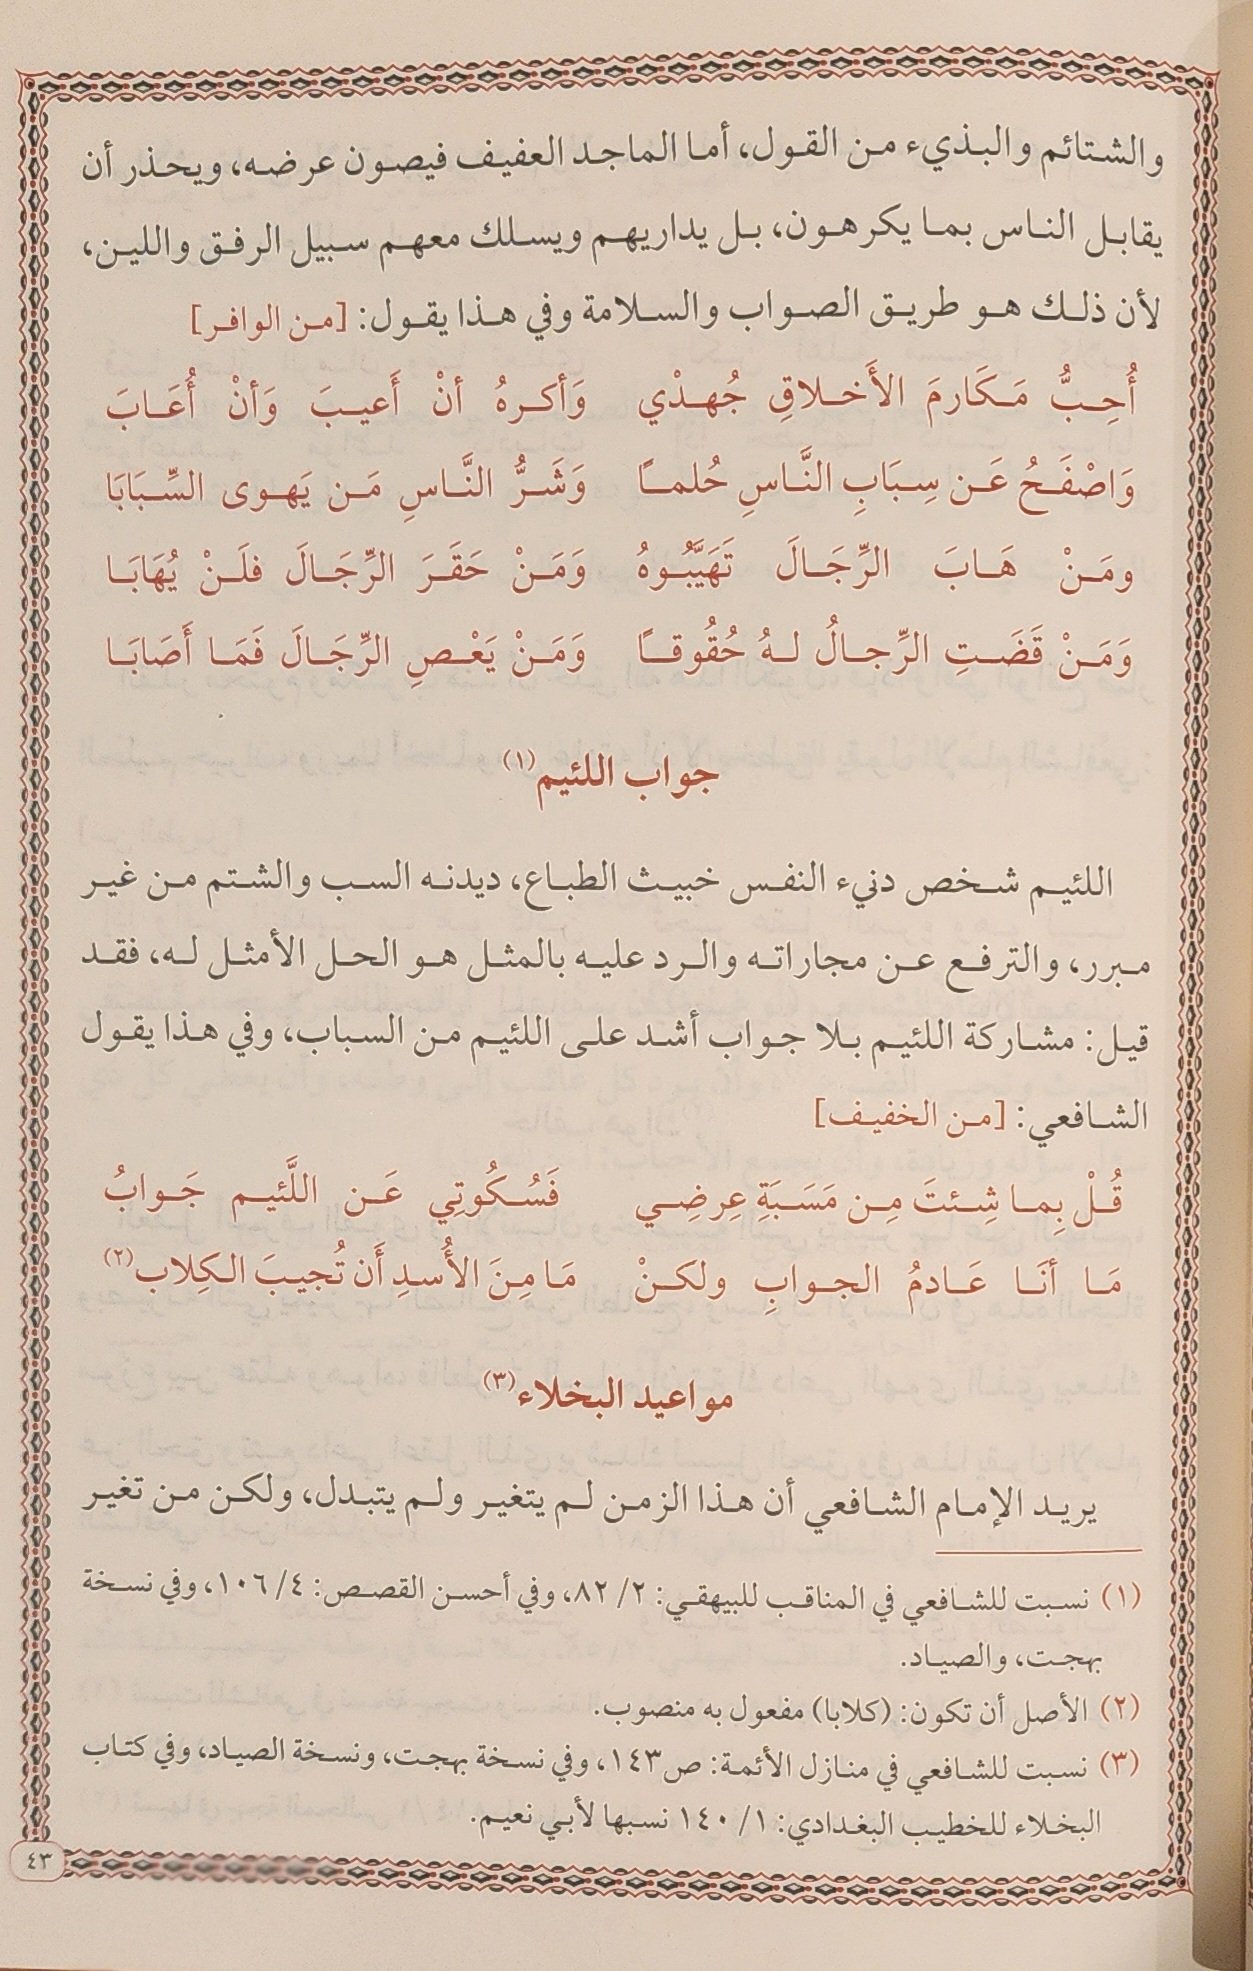 والشتائم والبذيء من القول، أما الماجد العفيف فيصون عرضه، ويحذر أن
يقابل الناس بما يكرهون، بل يداريهم ويسلك معهم سبيل الرفق واللين،
لأن ذلك هو طريق الصواب والسلامة وفي هذا يقول: [من الوافر]
أُحِبُّ مَكَارمَ الأَخلاقِ جُهدْي وَأكرهُ أنْ أَعيبَ وَأنْ أُعَابَ
وَاصْفَحُ عَن سِبَابِ النَّاسِ حُلماً وَشَرُّ النَّاسِ مَن يَهوى السِّبَابَا
ومَنْ هَابَ الرِّجَالَ تَهَيَّبُوهُ وَمَنْ حَقَرَ الرِّجَالَ فلَنْ يُهَابَا
وَمَنْ قَضَتِ الرِّجالُ لهُ حُقُوقاً وَمَنْ يَعْصِ الرِّجَالَ فَمَا أَصَابَا
جواب اللئيم(١)
اللئيم شخص دنيء النفس خبيث الطباع، ديدنه السب والشتم من غير
مبرر، والترفع عن مجاراته والرد عليه بالمثل هو الحل الأمثل له، فقد
قيل: مشاركة اللئيم بلا جواب أشد على اللئيم من السباب، وفي هذا يقول
الشافعي: [من الخفيف]
قُلْ بِما شِئتَ مِن مَسَبَةِ عِرضِي فَسُكُوتِي عَن اللَّئيم جَوابُ
مَا أنَا عَادمُ الجوابِ ولكنْ مَا مِنَ الأُسدِ أَن تُجيبَ الكِلاب(٢)
مواعيد البخلاء(٣)
يريد الإمام الشافعي أن هذا الزمن لم يتغير ولم يتبدل، ولكن من تغير
(١) نسبت للشافعي في المناقب للبيهقي: ٢/ ٨٢، وفي أحسن القصص: ٤/ ١٠٦، وفي نسخة
بهجت، والصياد.
(٢) الأصل أن تكون: (كلابا) مفعول به منصوب.
(٣) نسبت للشافعي في منازل الأئمة: ص١٤٣، وفي نسخة بهجت، ونسخة الصياد، وفي كتاب
البخلاء للخطيب البغدادي: ١/ ١٤٠ نسبها لأبي نعيم.
٤٣